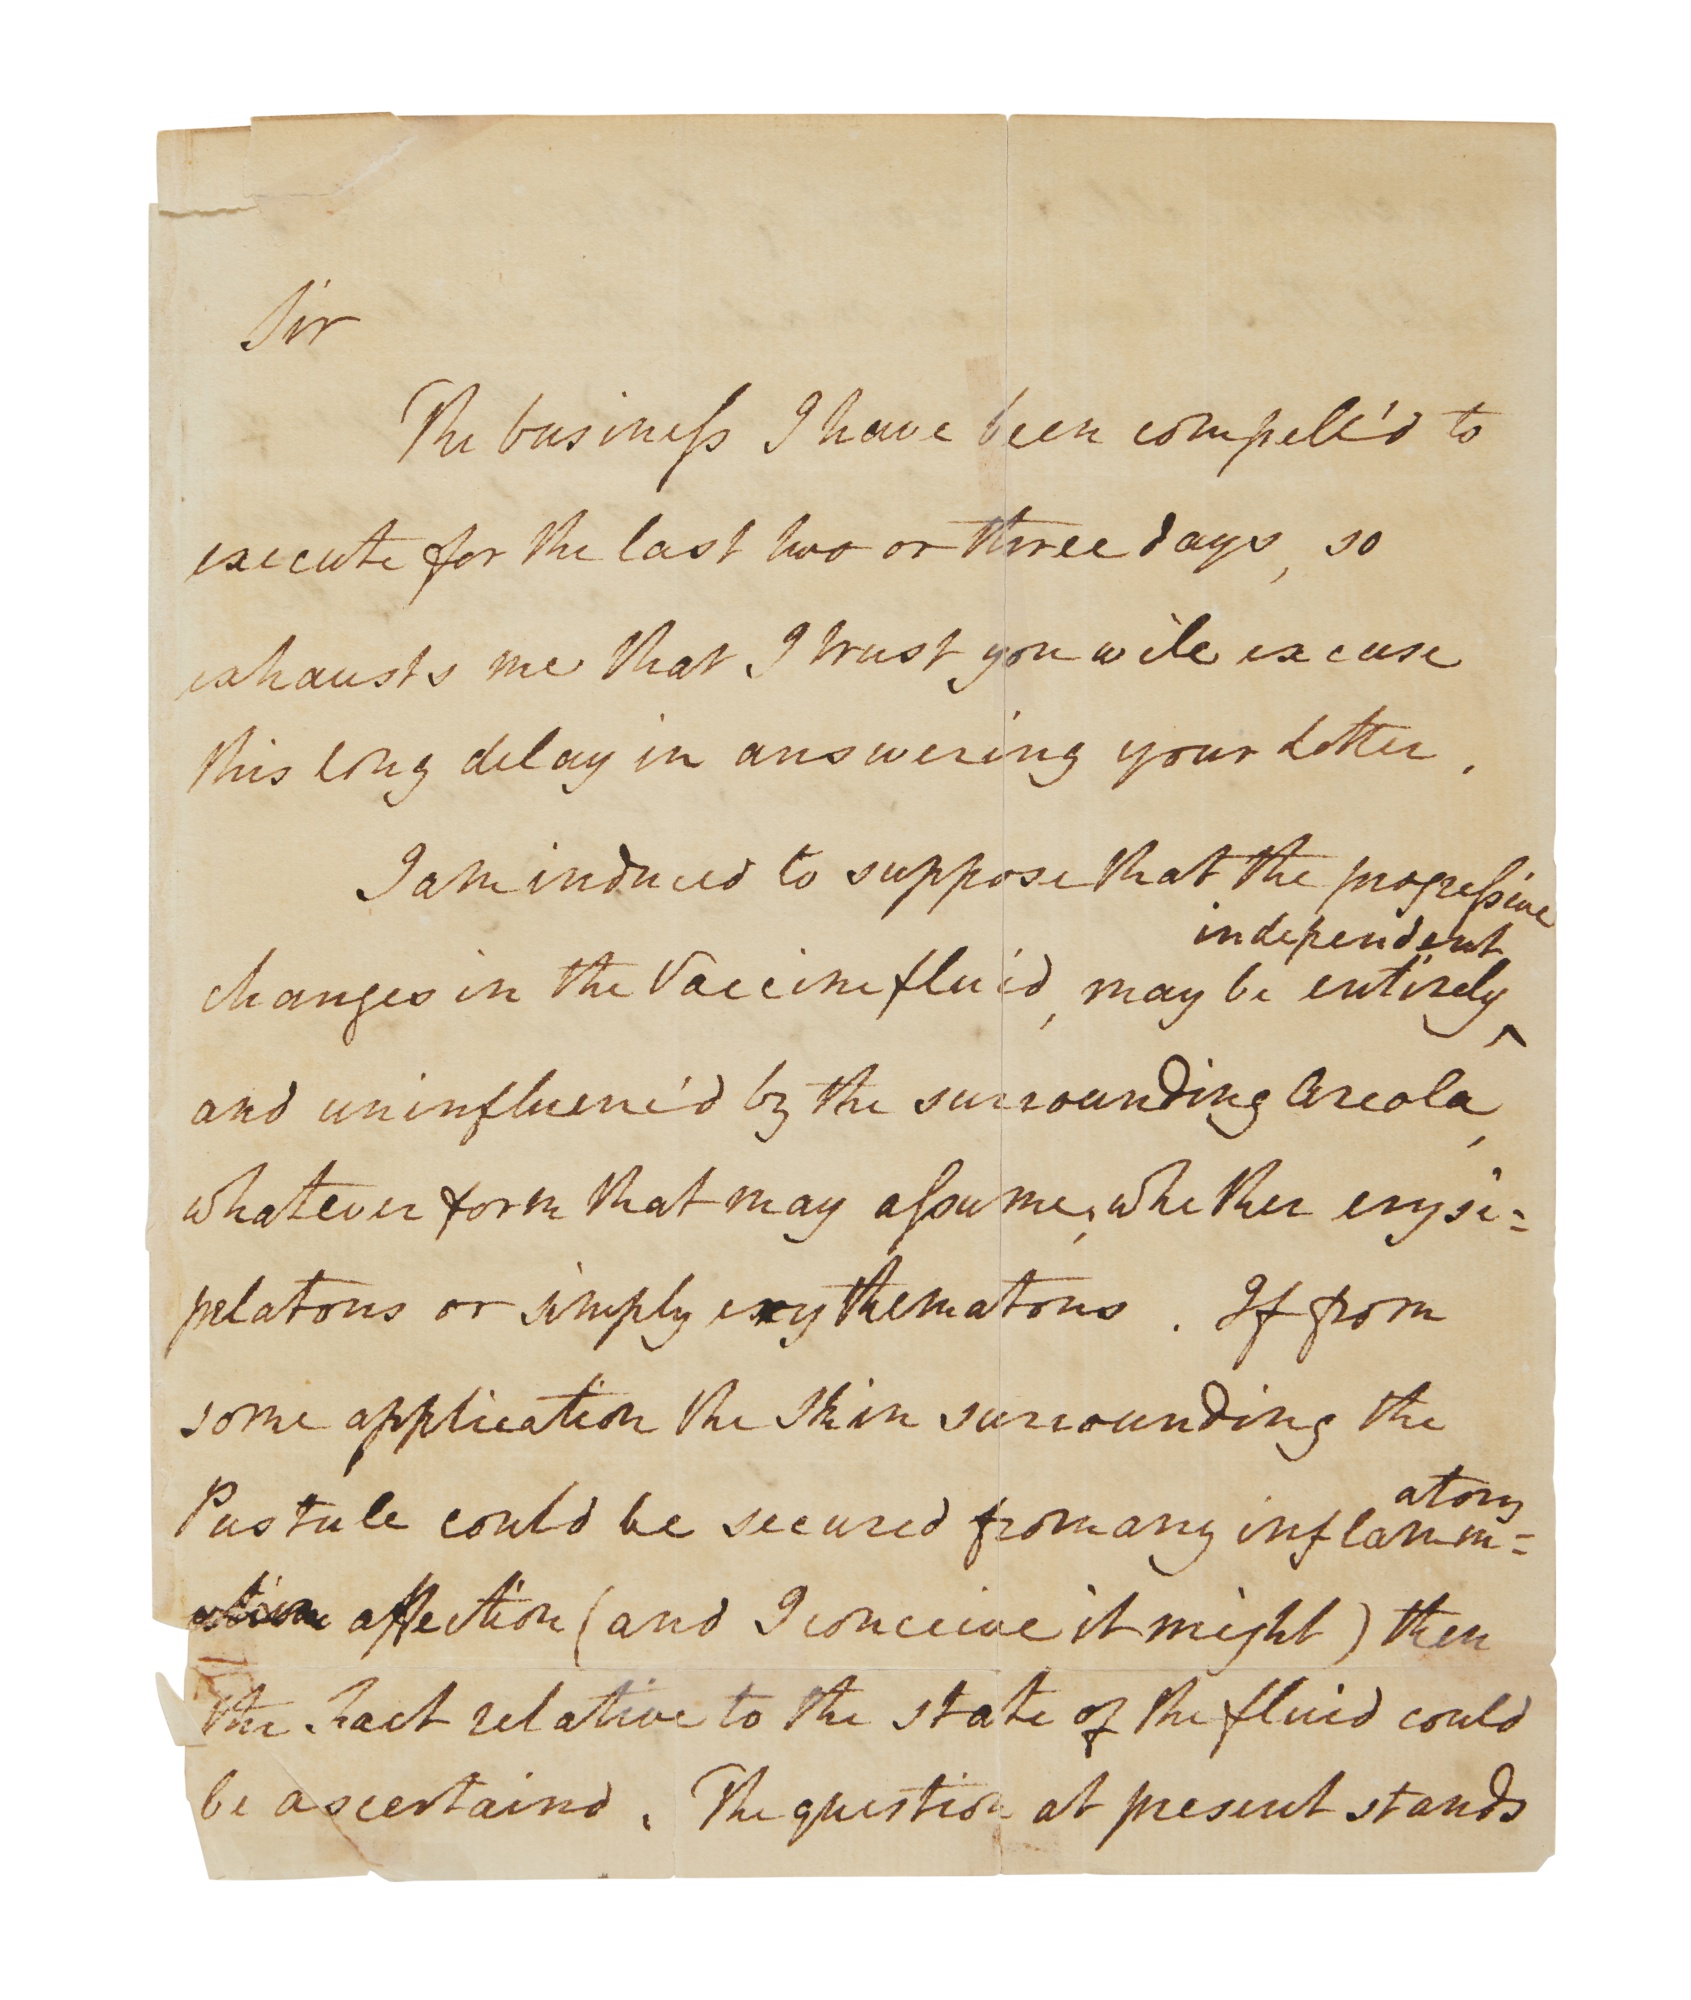 Sir
The business I have been compell'd to
execute for the last two or three days, so
exhausts me that I trust you will excuse
this long delay in answering your Letter.
I am induced to suppose that the progressive
independent
changes in the Vaccine fluid, may be entirely ^
and uninfluenc'd by the surrounding Areola,
whatever form that may assume, whether erysi=
pelatous or simply erythematous. If from
some application the Skin surrounding the
atory
Pustule could be secured from any inflamm=
affection (and I conceive it might) then
the Fact relative to the state of the fluid could
be ascertaind. The question at present stands